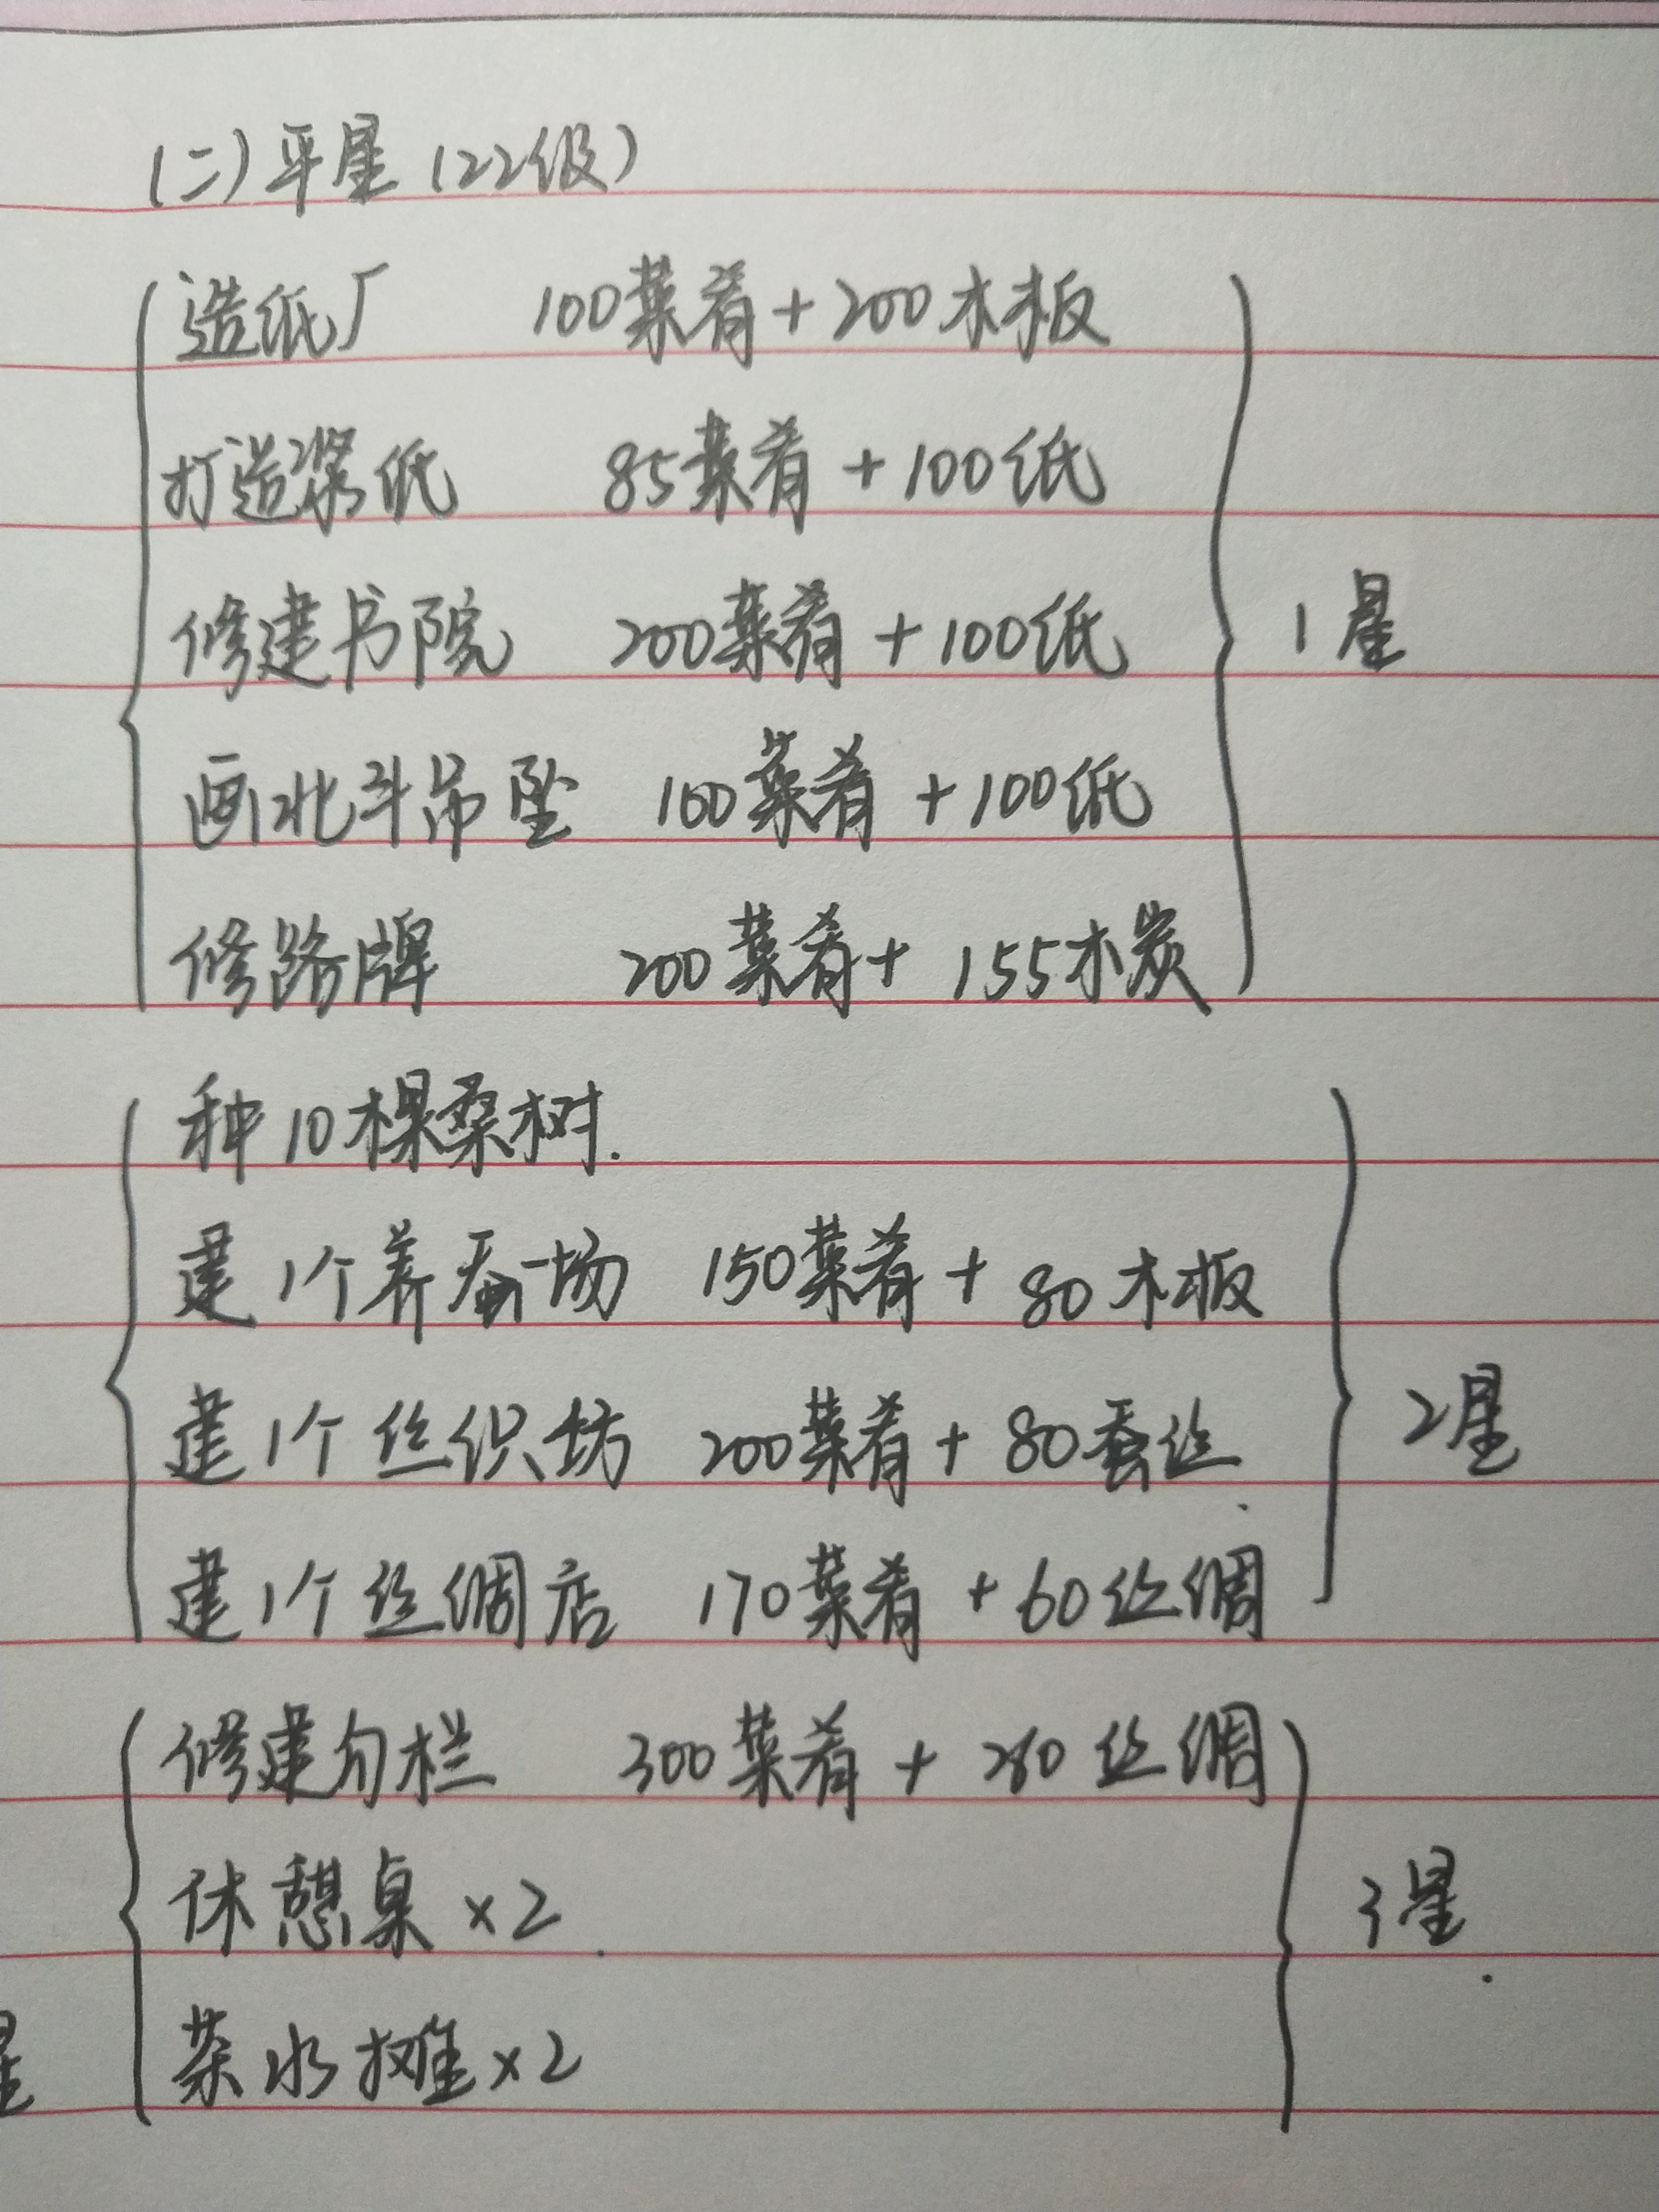 (二)平星(22级)
造纸厂 100菜肴+200木板
打造浆纸 85菜肴+100纸
修建书院 200菜肴+100纸
画北斗吊坠 100菜肴+100纸
修路牌 200菜肴+155木炭
1星
种10棵桑树.
建1个养蚕场 150菜肴+80木板
建1个丝织坊 200菜肴+80蚕丝
建1个丝绸店 170菜肴+60丝绸
2星
修建勾栏 300菜肴+280丝绸
休憩桌×2
茶水摊×2
3星
星